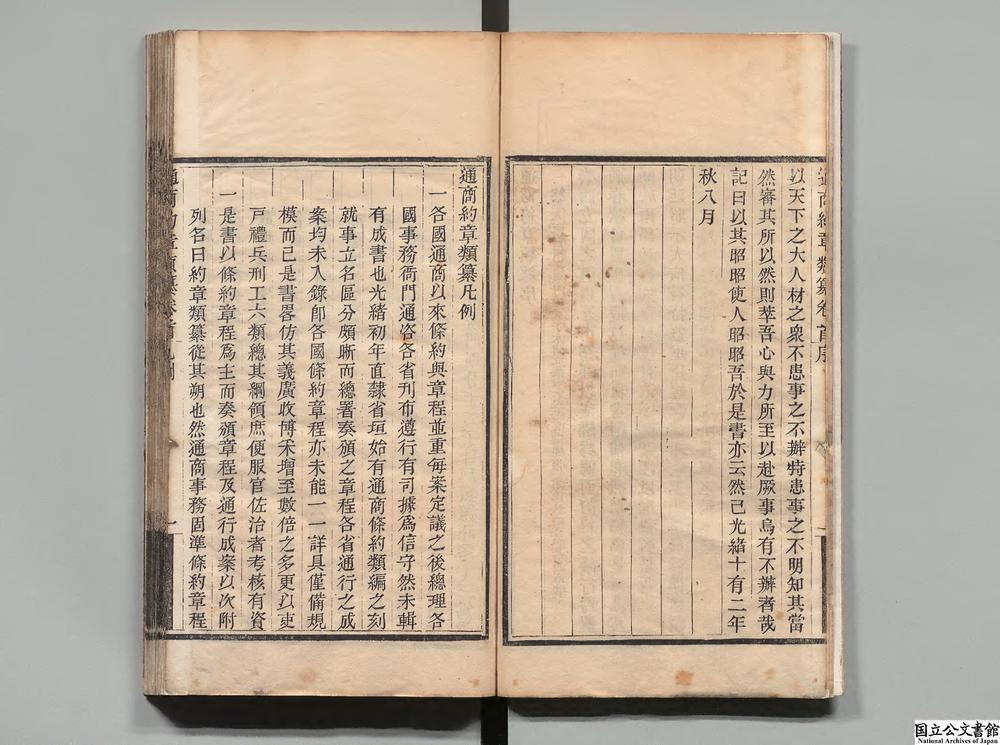 通商約章類纂卷首序
以天下之大人材之衆不患事之不辦特患事之不明知其當
然審其所以然則萃吾心與力所至以赴厥事烏有不辦者哉
記曰以其昭昭使人昭昭吾於是書亦云然己光緒十有二年
秋八月
通商約章類纂凡例
一各國通商以來條約與章程並重每案定議之後總理各
國事務衙門通咨各省刊布遵行有司據爲信守然未輯
有成書也光緒初年直隸省垣始有通商條約類編之刻
就事立名區分頗晰而總署奏頒之章程各省通行之成
案均未入錄卽各國條約章程亦未能一一詳具僅備規
模而已是書畧仿其義廣收博采增至數倍之多更以吏
戸禮兵刑工六類總其綱領庶便服官佐治者考核有資
一是書以條約章程爲主而奏頒章程及通行成案以次附
列名曰約章類纂從其朔也然通商事務固準條約章程
通商約章類纂卷首凡例
一
国立公文書館
National Archives of Japan